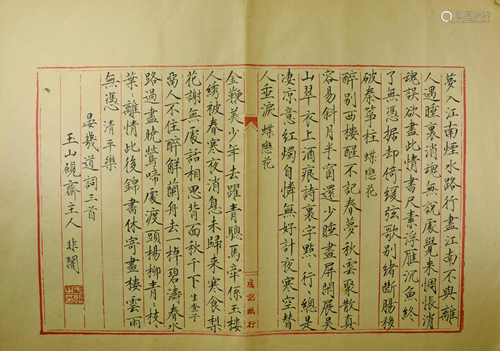 夢入江南煙水路行盡江南不與離
人遇睡裏消魂無說處覺來惆悵消
魂誤欲盡此情書尺素浮雁沉魚終
了無憑据却倚緩弦歌別緒斷腸移
破秦箏柱 蝶戀花
醉別西樓醒不記春夢秋雲聚散真
容易斜月半窗還少睡畫屏閒展吳
山翠衣上酒痕詩裏字點〻行〻總是
凄凉意紅燭自憐無好計夜寒空替
人垂淚 蝶戀花
金鞭美少年去躍青驄馬牽係玉樓
人綉被春寒夜消息未歸來寒食梨
花謝無處話相思背面秋千下 生查子
留人不住醉解蘭舟去一棹碧濤春水
路過盡曉鶯啼處渡頭楊柳青〻枝〻
葉〻離情此後錦書休寄畫樓雲雨
無憑 清平樂
晏幾道詞三首
玉山硯齋主人 非闇
記紙行